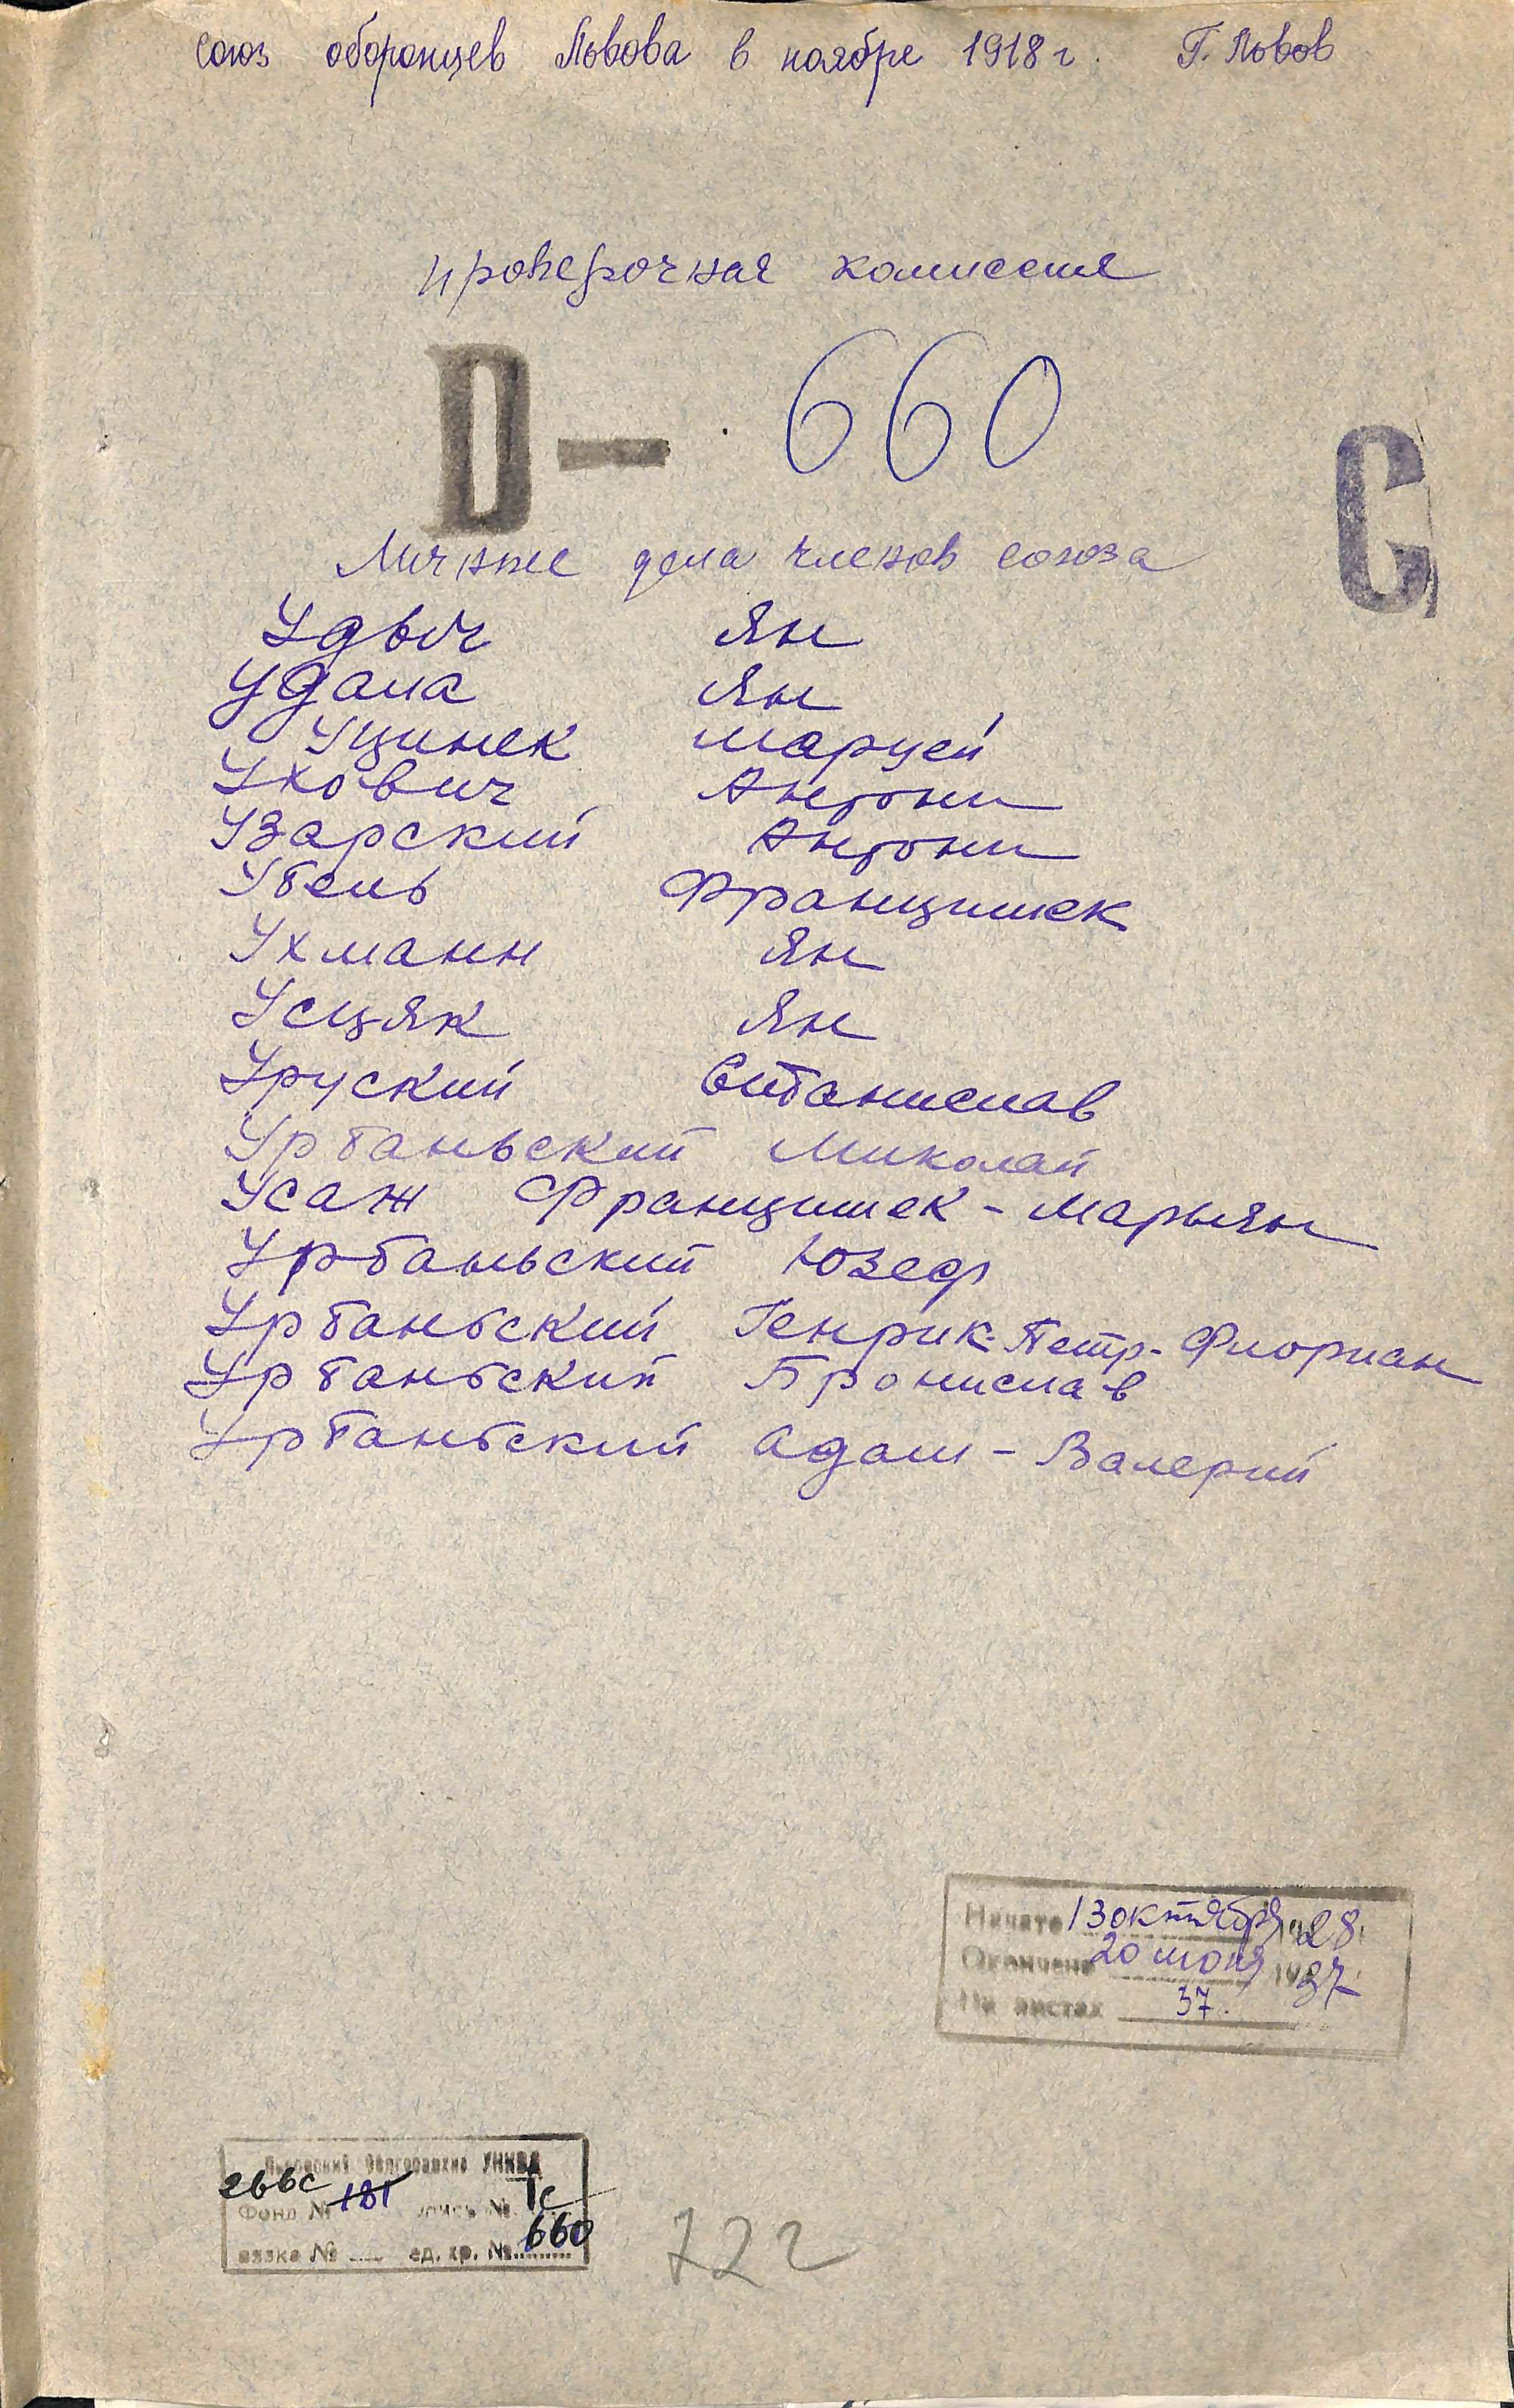 Союз оборонцев Львова в ноябре 1918 г. Г. Львов
проверочная комиссия
D — 660
С
Личные дела членов союза
Удыч Ян
Удала Ян
Уцинек Марцей
Ухович Антони
Узарский Антони
Убель Францишек
Ухманн Ян
Усцяк Ян
Уруский Станислав
Урбаньский Миколай
Усаж Францишек-Марьян
Урбаньский Юзеф
Урбаньский Генрик-Петр-Флориан
Урбаньский Бронислав
Урбаньский Адам-Валерий
Начато 13 октября 1928
Окончено 20 июня 1937
На листах 37.
Львовский Облгосархив УНКВД
266с
Фонд № 181 опись № 1с
вязка № ед. хр. № 660
722